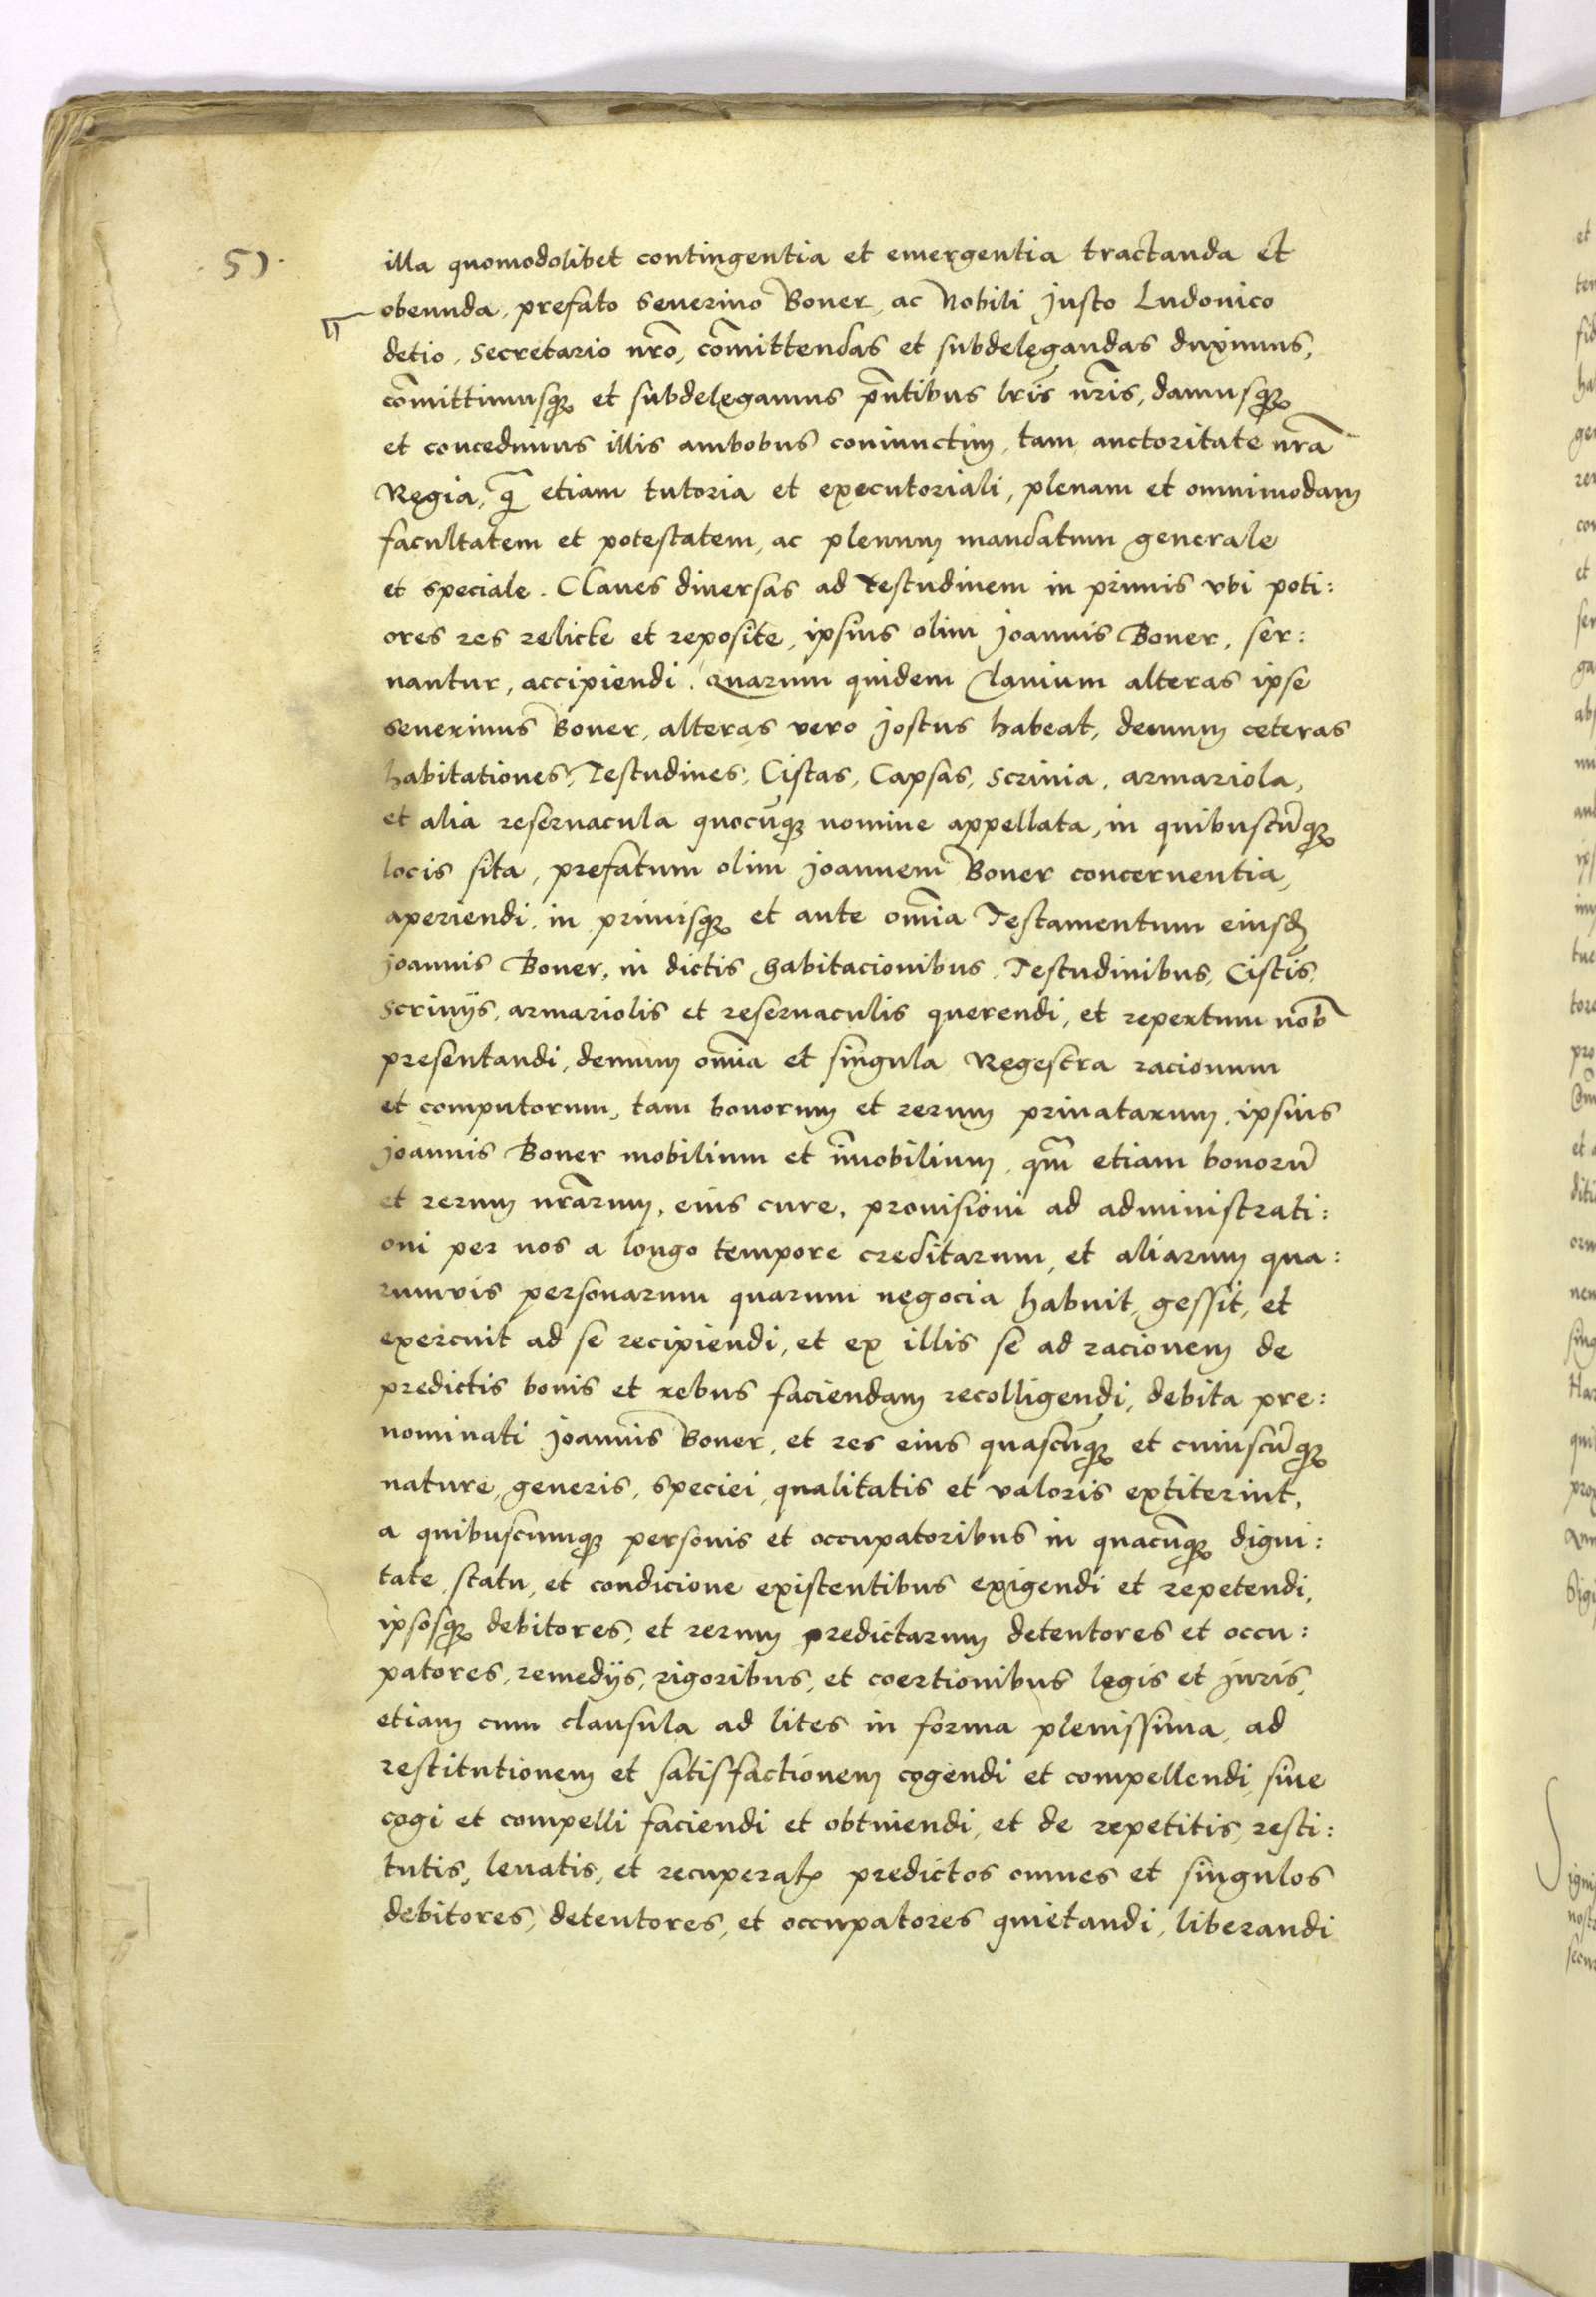 · 51 ·
illa quomodolibet contingentia et emergentia tractanda et
obeunda, prefato Seuerino Boner, ac Nobili Justo Ludouico
detio, Secretario nr̄o, com̄ittendas et subdelęgandas duximus,
com̄ittimusqꝫ et subdelęgamus p̄ntibus lr̄is nr̄is, damusqꝫ
et concedimus illis ambobus coniunctim, tam auctoritate nr̄a
Regia, q̄ etiam tutoria et executoriali, plenam et omnimodam
facultatem et potestatem, ac plenum mandatum generale
et speciale. Claues diuersas ad testudinem in primis vbi poti:
ores res relicte et reposite, ipsius olim Joannis Boner, ser:
uantur, accipiendi. Quarum quidem Clauium alteras ipse
Seuerinus Boner, alteras vero Jostus habeat, demum ceteras
habitationes, Testudines, Cistas, Capsas, Scrinia, armariola,
et alia reseruacula quocūqꝫ nomine appellata, in quibuscūqꝫ
locis sita, prefatum olim Joannem Boner concernentia,
aperiendi. in primisqꝫ et ante om̄ia Testamentum eiusđ
Joannis Boner, in dictis habitacionibus Testudinibus, Cistis,
Scrinijs, armariolis et reseruaculis querendi, et repertum nob̄
presentandi, demum om̄ia et singula Regestra racionum
et computorum, tam bonorum et rerum priuatarum, ipsius
Joannis Boner mobilium et im̄obilium, qm̄ etiam bonorū
et rerum nr̄arum, eius cure, prouisioni ad administrati:
oni per nos a longo tempore creditarum, et aliarum qua:
rumvis personarum quarum negocia habuit, gessit, et
exercuit ad se recipiendi, et ex illis se ad racionem de
predictis bonis et rebus faciendam recolligendi, debita pre:
nominati Joannis Boner, et res eius quascūqꝫ et cuiuscūqꝫ
nature, generis, speciei, qualitatis et valoris extiterint,
a quibuscumqꝫ personis et occupatoribus in quacūqꝫ digni:
tate, statu, et condicione existentibus exigendi et repetendi,
ipsosqꝫ debitores, et rerum predictarum detentores et occu:
patores, remedijs, rigoribus, et coertionibus legis et juris,
etiam cum clausula ad lites in forma plenissima, ad
restitutionem et satisfactionem cogendi et compellendi, siue
cogi et compelli faciendi et obtinendi, et de repetitis, resti:
tutis, leuatis, et recuperatꝭ predictos omnes et singulos
debitores, detentores, et occupatores quietandi, liberandi